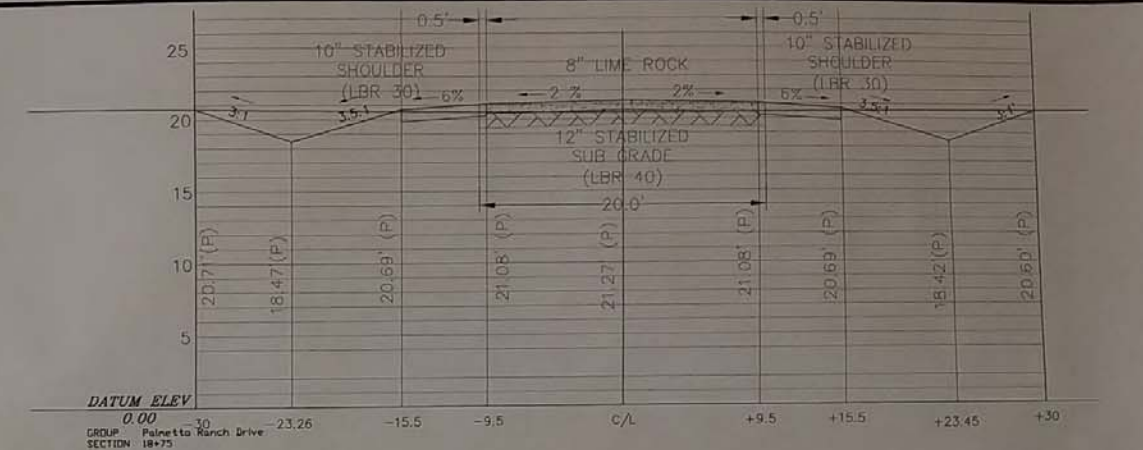 0.5' 0.5'
25
10" STABILIZED
SHOULDER
(LBR 30)
8" LIME ROCK
10" STABILIZED
SHOULDER
(LBR 30)
3:1 3.5:1 6% 2 % 2% 6% 3.5:1 3:1
20
12" STABILIZED
SUB GRADE
(LBR 40)
20.0'
15
10
5
20.71' (P)
18.47' (P)
20.69' (P)
21.08' (P)
21.27' (P)
21.08' (P)
20.69' (P)
18.42' (P)
20.60' (P)
DATUM ELEV
0.00
-30 -23.26 -15.5 -9.5 C/L +9.5 +15.5 +23.45 +30
GROUP Palmetto Ranch Drive
SECTION 18+75